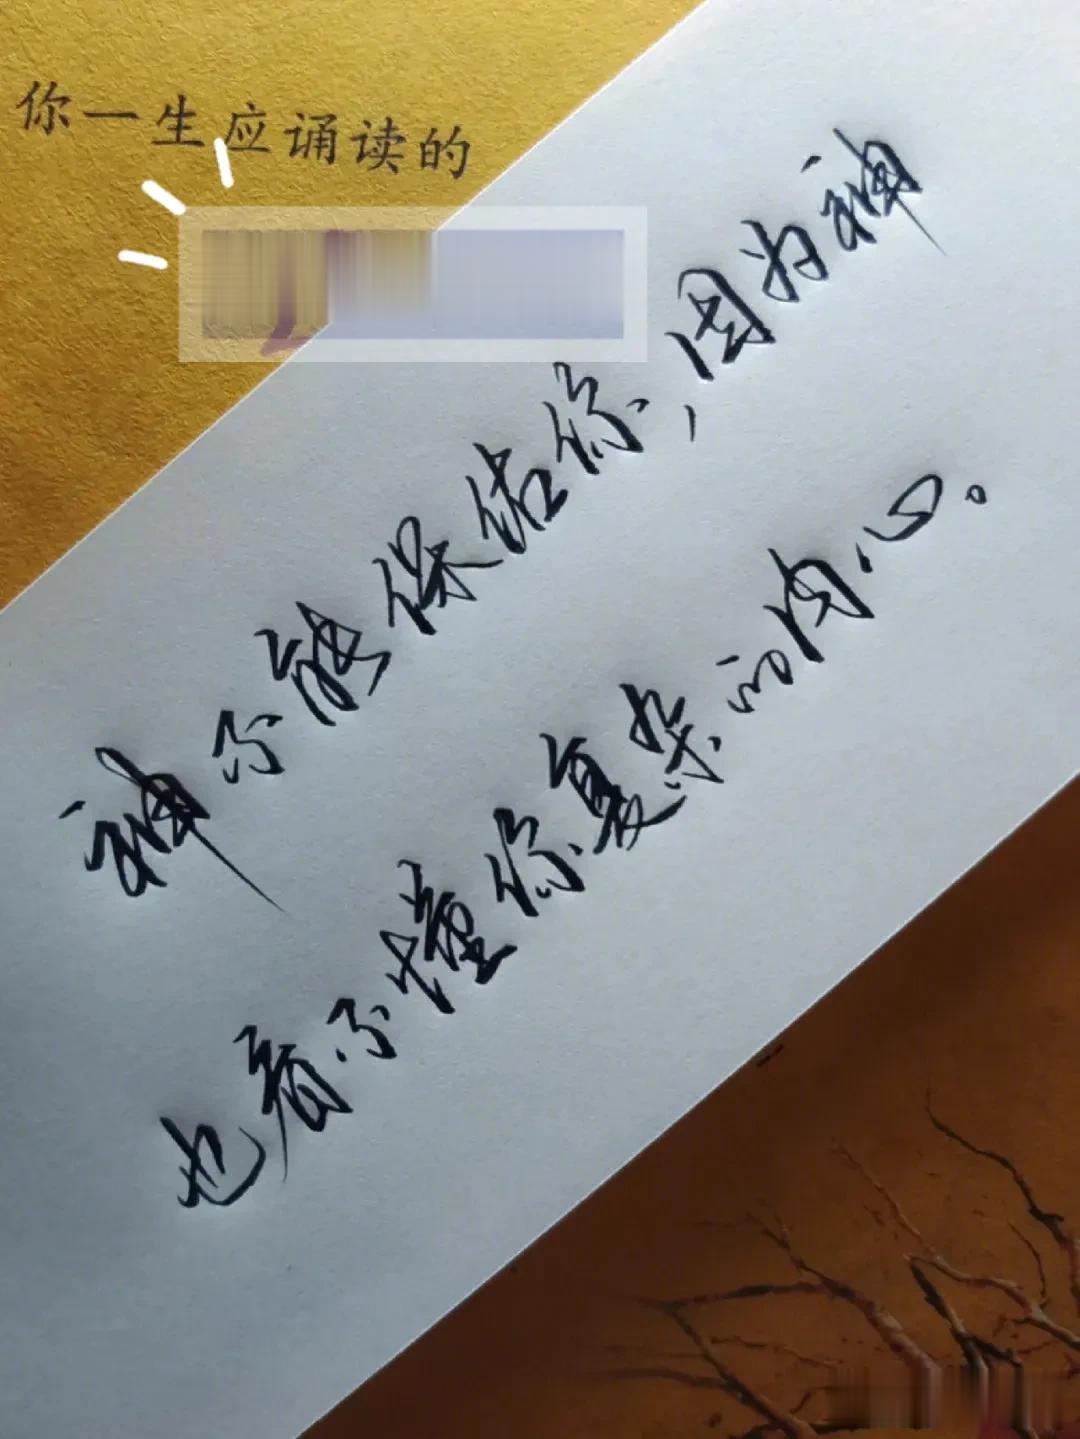 你一生应诵读的
神不能保佑你,因为神
也看不懂你复杂的内心。